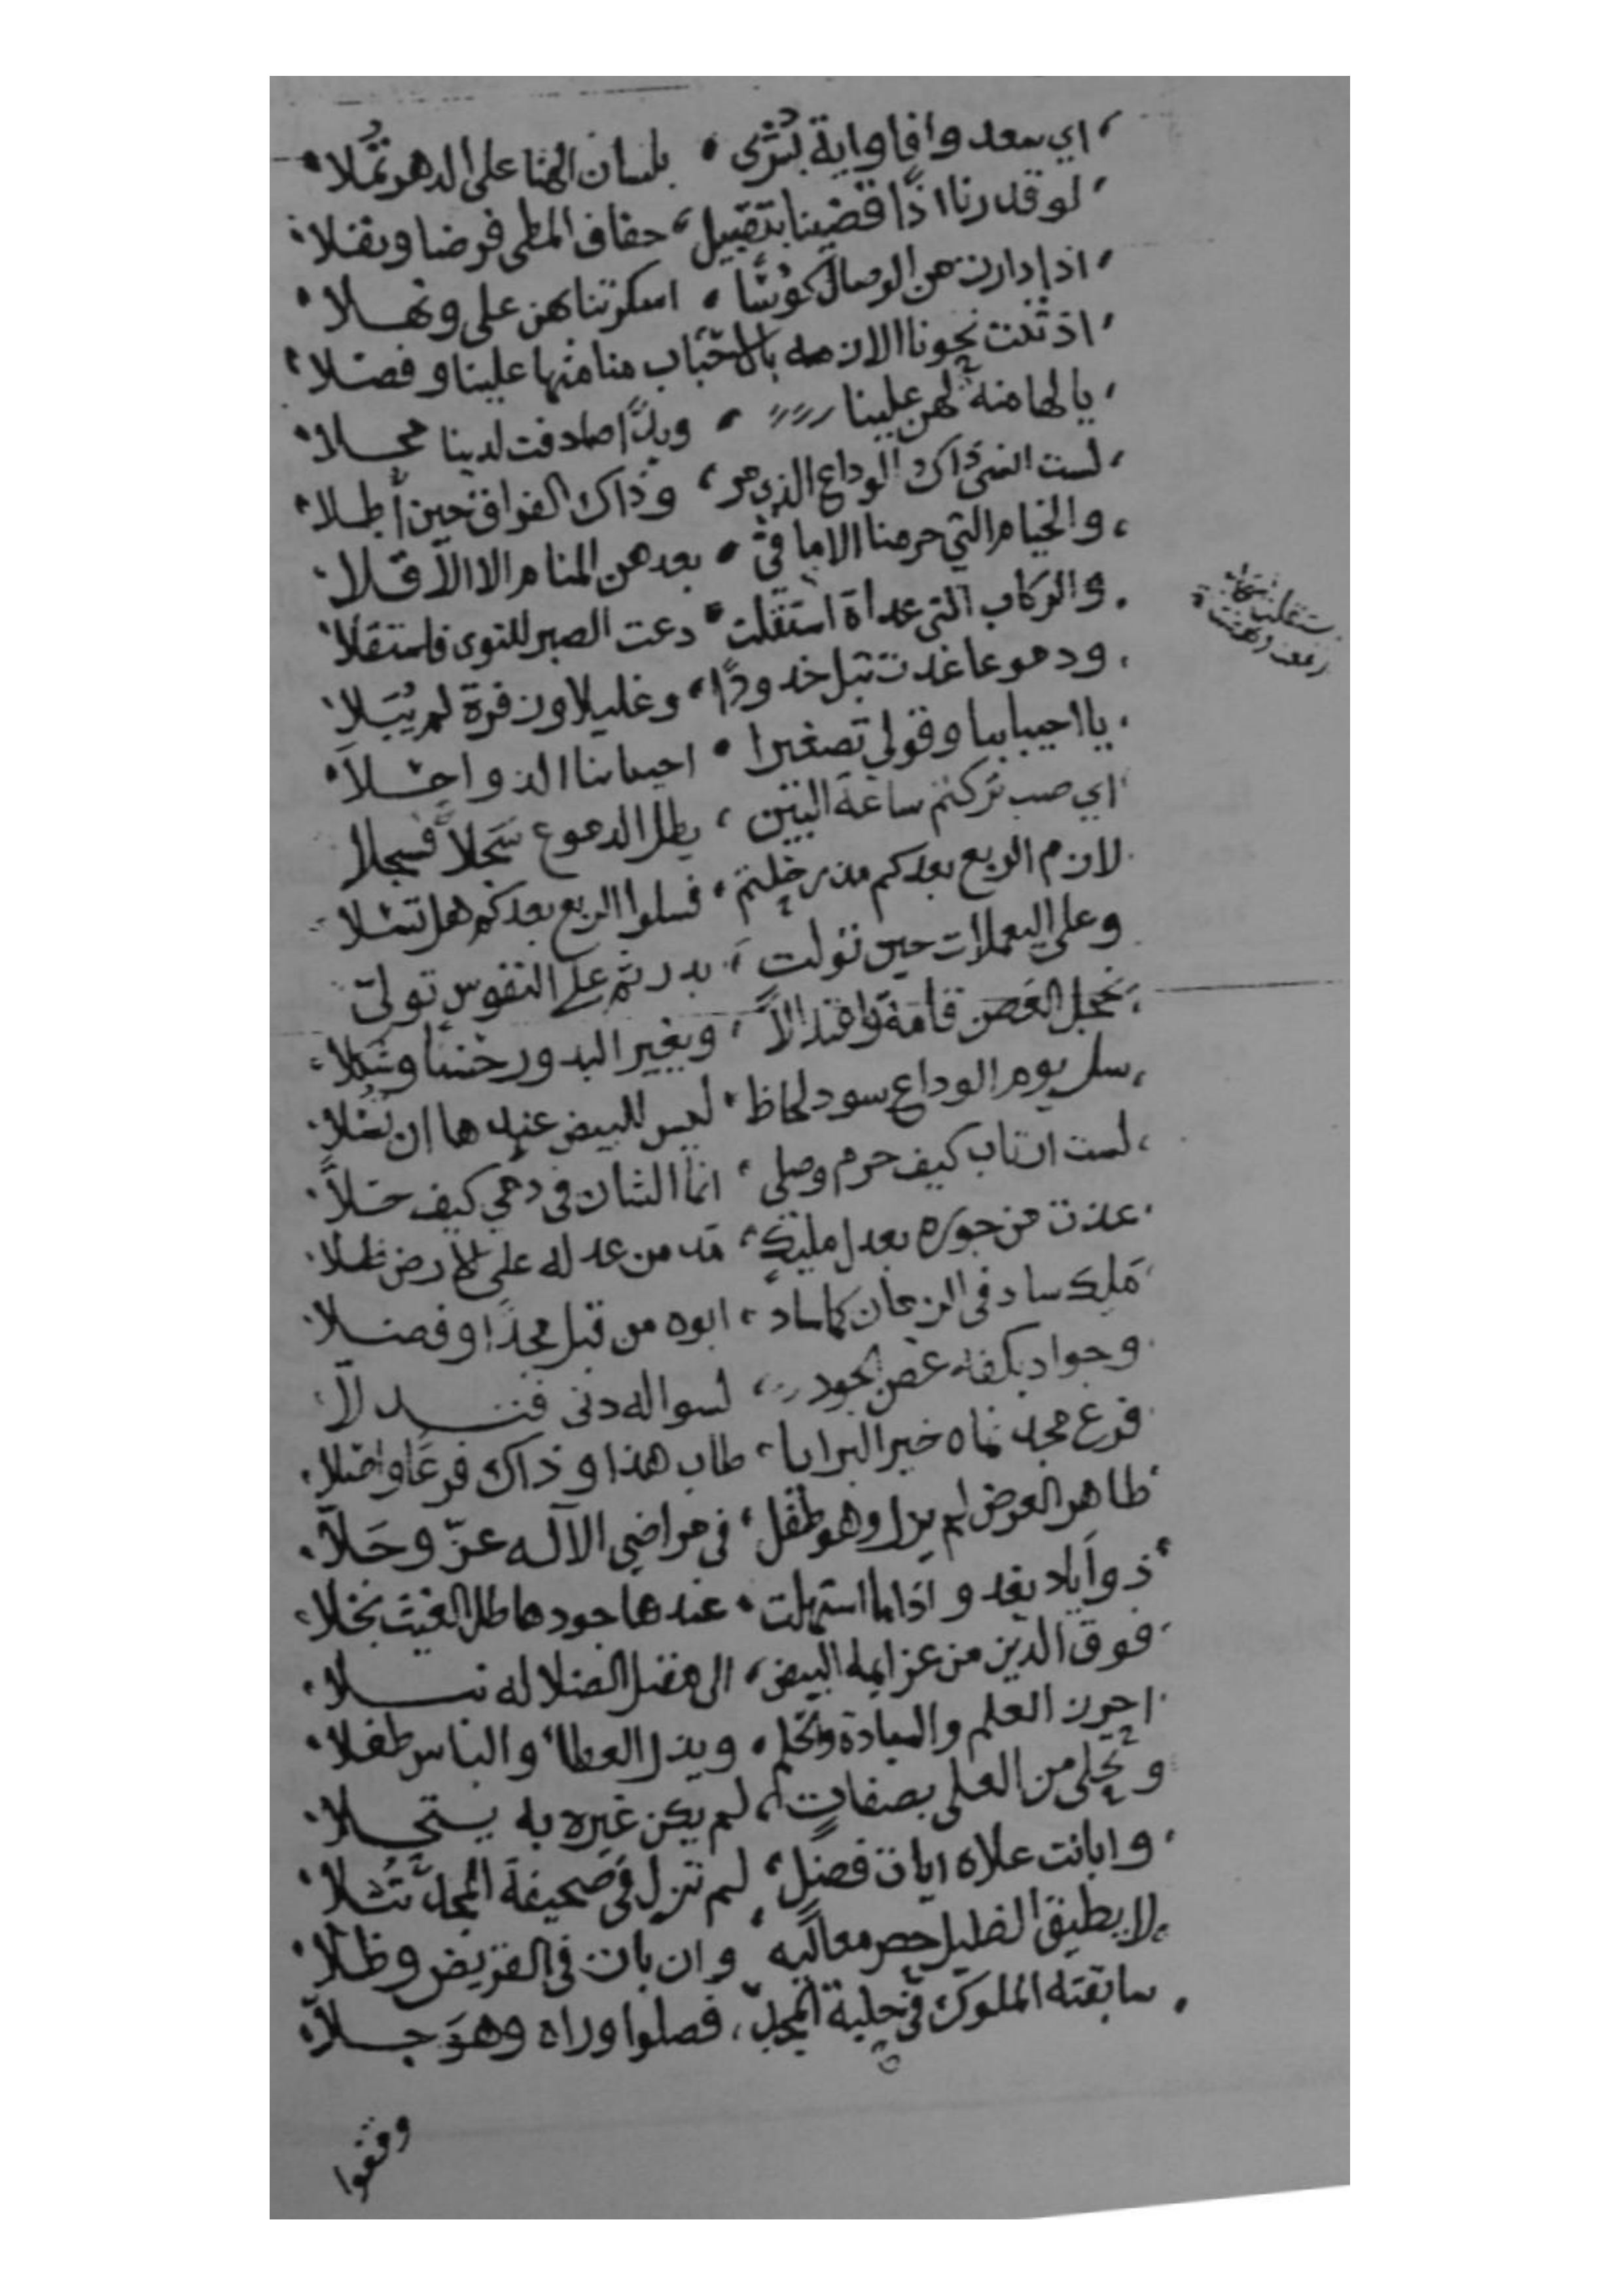 اي سعد وافا واية بشرى بلسان الهنا على الدهر تملا
لو قدرنا اذا قضينا بتقبيل حفاف المطى فرضا ونفلا
اذا دارت من الوصال كوسا اسكرتنا بهن على ونهلا
اذ ثنت نحونا الازمه بالاحباب منا منها علينا وفضلا
يا لها منة لهن علينا ويدا صادفت لدينا محلا
لست انسى ذاك الوداع الذى مر وذاك الفراق حين اطلا
والخيام التي حرمنا الاماقى بعدهن المنام الا الاقلا
والركاب التى غداة استقلت دعت الصبر للنوى فاستقلا
ودموعا غدت تبل خدودا وغليلا وزفرة لم يبلا
يا احيبابنا وقولى تصغيرا احبابنا الذ واحلا
اي صب تركتم ساعة البين يطل الدموع سجلا فسجلا
لازم الربع بعدكم مذ رحلتم فسلوا الربع بعدكم هل تسلا
وعلى اليعملات حين تولت بدر تم على النفوس تولى
يخجل الغصن قامة واعتدالا ويغير البدور حسنا وشكلا
سل يوم الوداع سود لحاظ ليس للبيض عندها ان تسلا
لست ارتاب كيف حرم وصلى انما الشان فى دمي كيف حلا
عذت من جوره بعدل مليك مد من عدله على الارض ظلا
ملك ساد فى الزمان كما ساد ابوه من قبل مجدا وفضلا
وجواد بكفه غصن الجود لسواله دنى فتدلا
فرع مجد نماه خير البرايا طاب هذا وذاك فرعا واصلا
طاهر العرض لم يزل وهو طفل فى مراضي الآله عز وجلا
ذو اياد يغدو اذا ما استهلت عندها جودها طل الغيث بخلا
فوق الدين من عزايمه البيض الى مفصل الضلاله نبلا
احرز العلم والسيادة والحلم وبذل العطا والناس طفلا
وتحلى من العلى بصفات لم يكن غيره به يتحلا
وابانت علاه ايات فضل لم تزل فى صحيفة المجد تتلا
لا يطيق الضليل حصر معاليه وان بات فى القريض وظلا
سابقته الملوك فى حلبة المجد فصلوا وراه وهو جلا